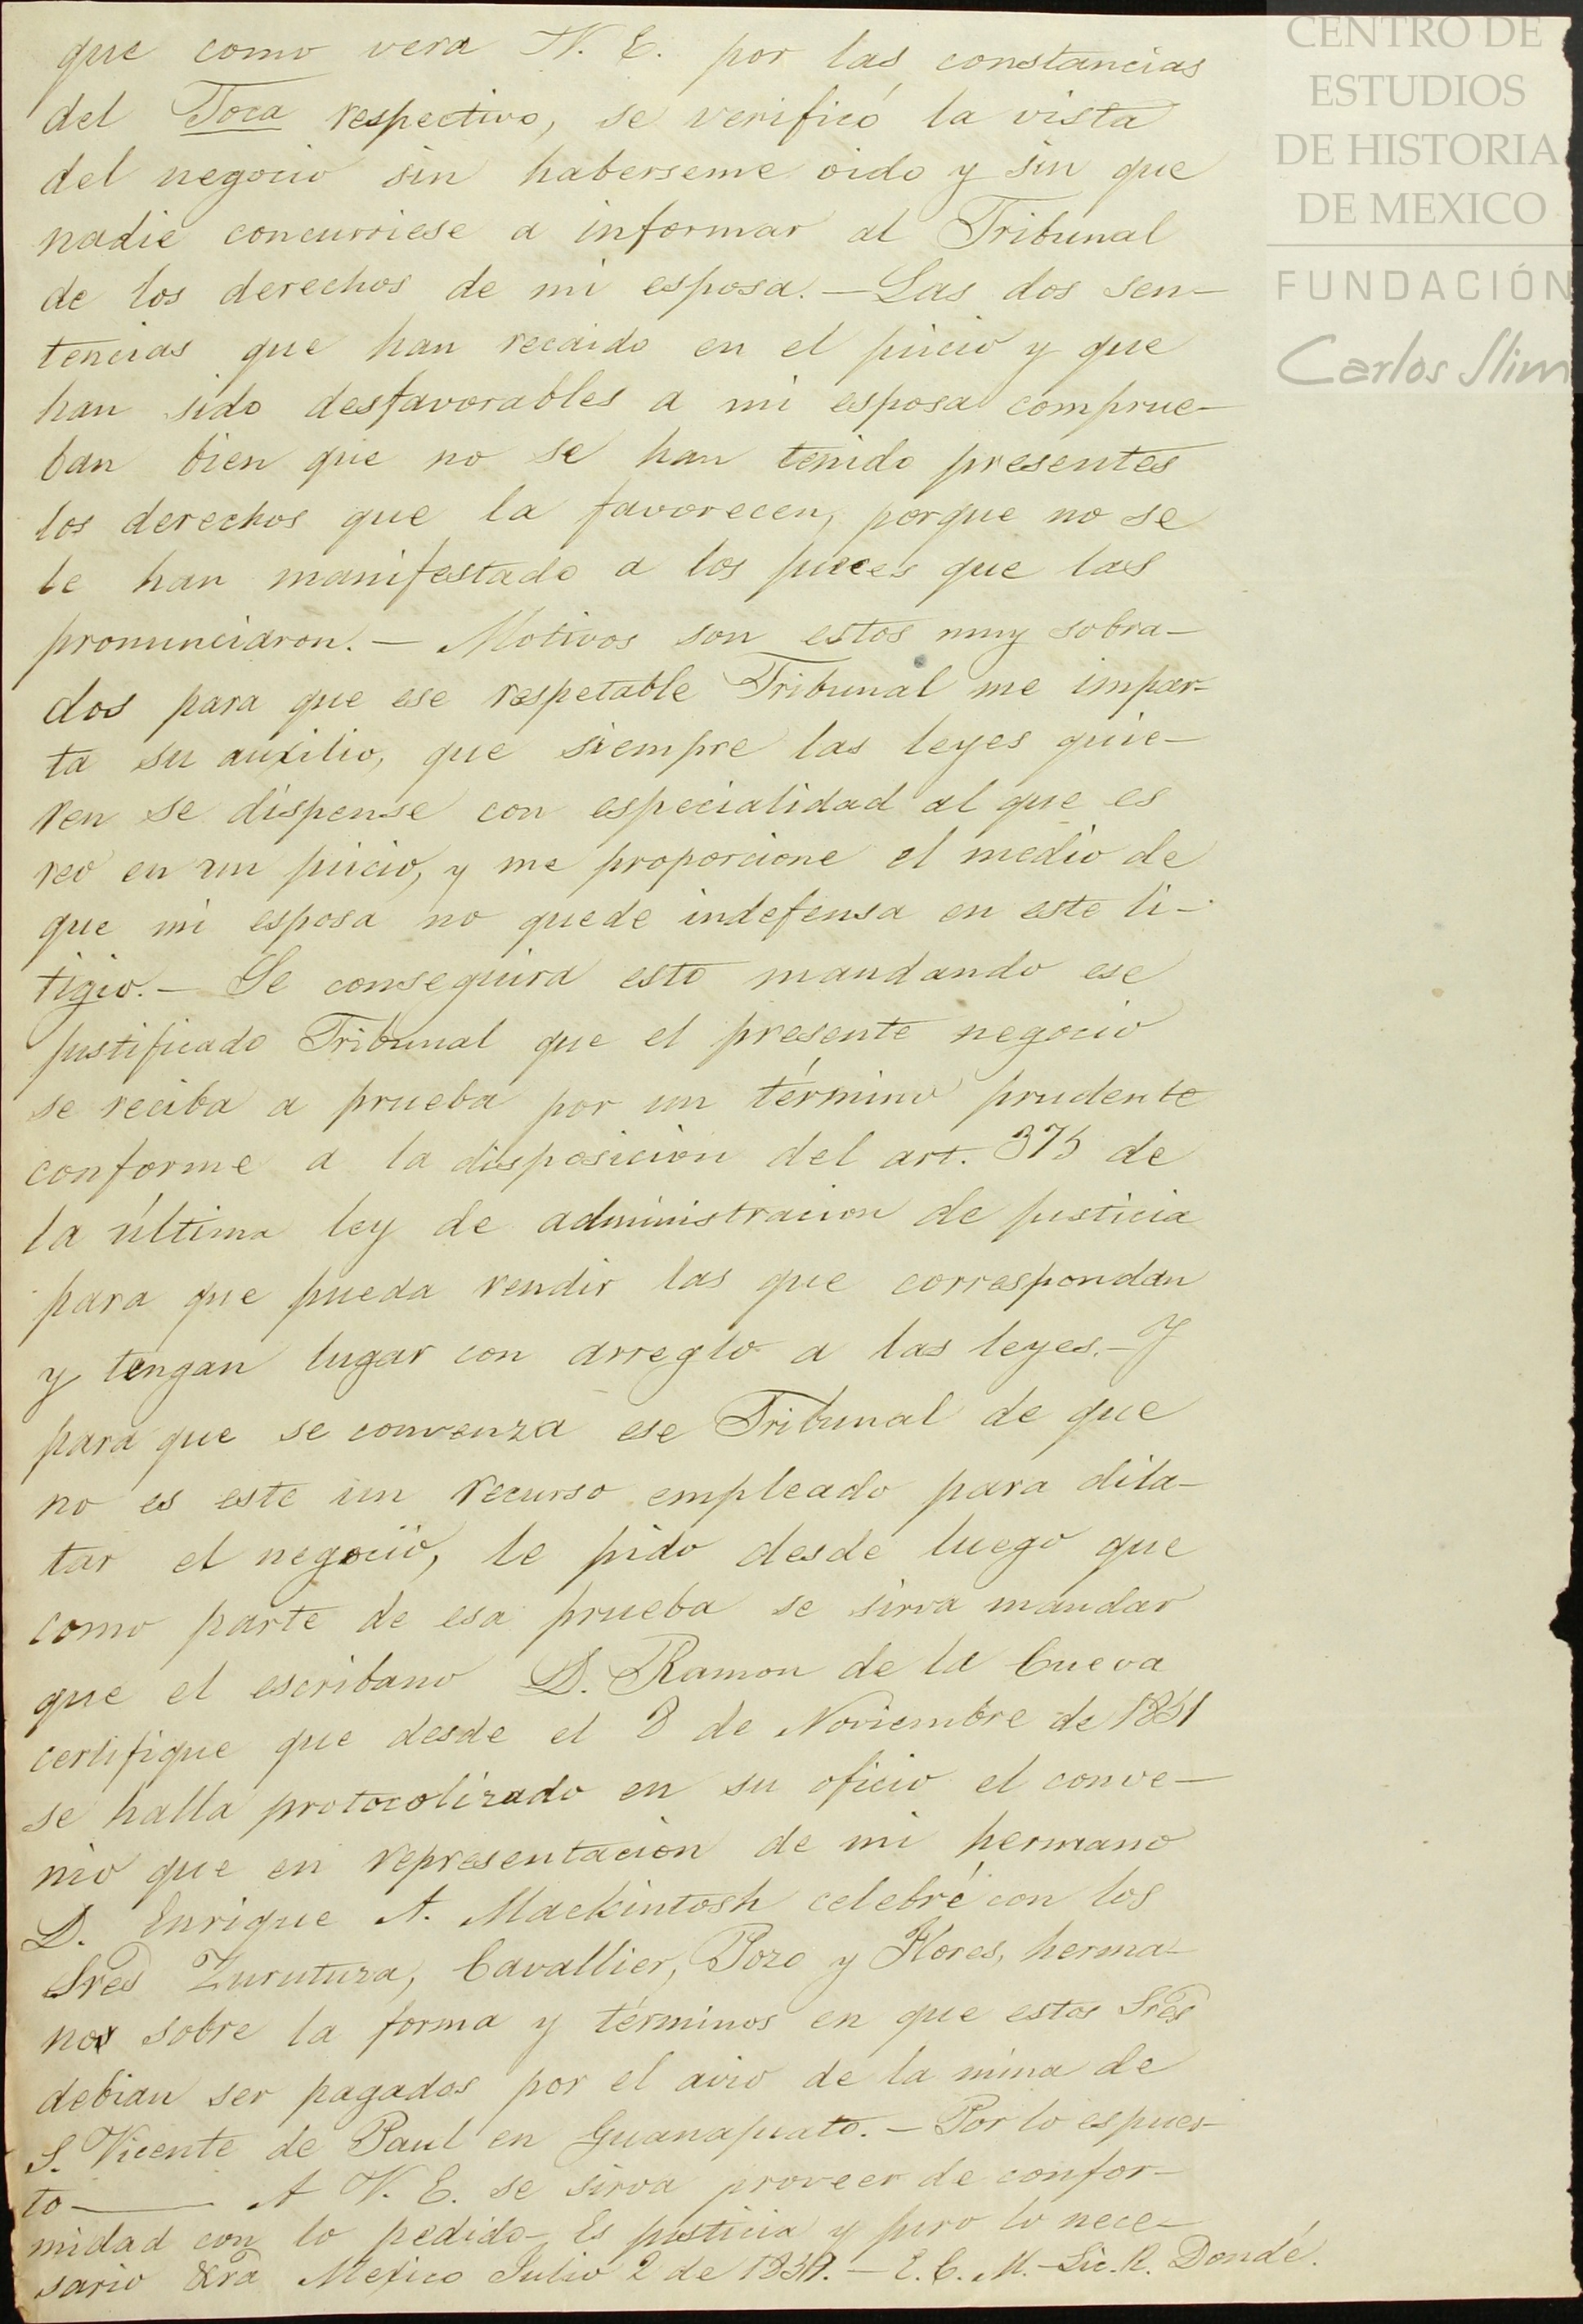 que como vera V. E. por las constancias
del Toca respectivo, se verificó la vista
del negocio sin haberseme oido y sin que
nadie concurriese a informar al Tribunal
de los derechos de mi esposa. — Las dos sen-
tencias que han recaido en el juicio y que
han sido desfavorables a mi esposa comprue-
ban bien que no se han tenido presentes
los derechos que la favorecen, porque no se
le han manifestado a los jueces que las
pronunciaron. — Motivos son estos muy sobra-
dos para que ese respetable Tribunal me impar-
ta su auxilio, que siempre las leyes quie-
ren se dispense con especialidad al que es
reo en un juicio, y me proporcione el medio de
que mi esposa no quede indefensa en este li-
tigio. — Se conseguira esto mandando ese
justificado Tribunal que el presente negocio
se reciba a prueba por un término prudente
conforme a la disposicion del art. 375 de
la última ley de administracion de justicia
para que pueda rendir las que correspondan
y tengan lugar con arreglo a las leyes. — Y
para que se convenza ese Tribunal de que
no es este un recurso empleado para dila-
tar el negocio, le pido desde luego que
como parte de esa prueba se sirva mandar
que el escribano D. Ramon de la Cueva
certifique que desde el 8 de Noviembre de
se halla protocolizado en su oficio el conve-
nio que en representacion de mi hermano
D. Enrique A. Mackintosh celebré con los
Sres Zurutuza, Cavallier, Pozo y Flores, herma-
nos sobre la forma y términos en que estos Sres
debian ser pagados por el avio de la mina de
S. Vicente de Paul en Guanajuato. — Por lo espues-
to — A V. E. se sirva proveer de confor-
midad con lo pedido — Es justicia y juro lo nece-
sario &ra Mexico Julio 2 de — E. C. M. — Lic. R. Dondé.
CENTRO DE
ESTUDIOS
DE HISTORIA
DE MEXICO
FUNDACIÓN
Carlos Slim